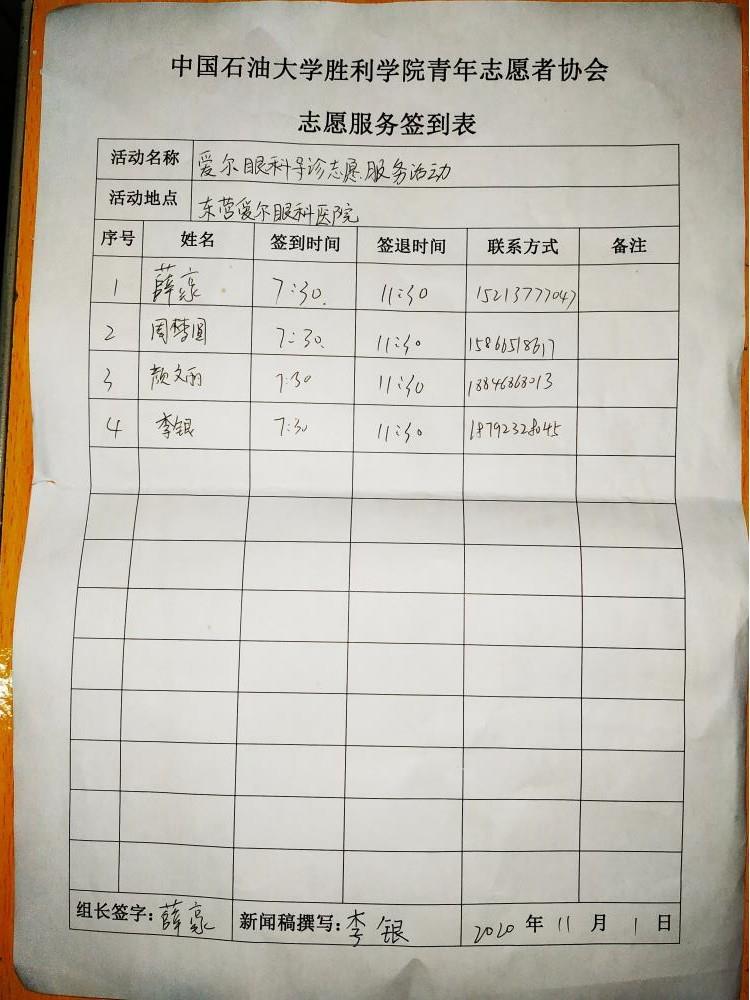 中国石油大学胜利学院青年志愿者协会
志愿服务签到表
活动名称 爱尔眼科导诊志愿服务活动
活动地点 东营爱尔眼科医院
序号 姓名 签到时间 签退时间 联系方式 备注
1 薛豪 7:30. 11:30 15213777047
2 周梦圆 7:30. 11:30 15866518617
3 颜文丽 7:30 11:30 18846868013
4 李银 7:30 11:30 18792328045
组长签字:薛豪 新闻稿撰写:李银 2020年11月1日